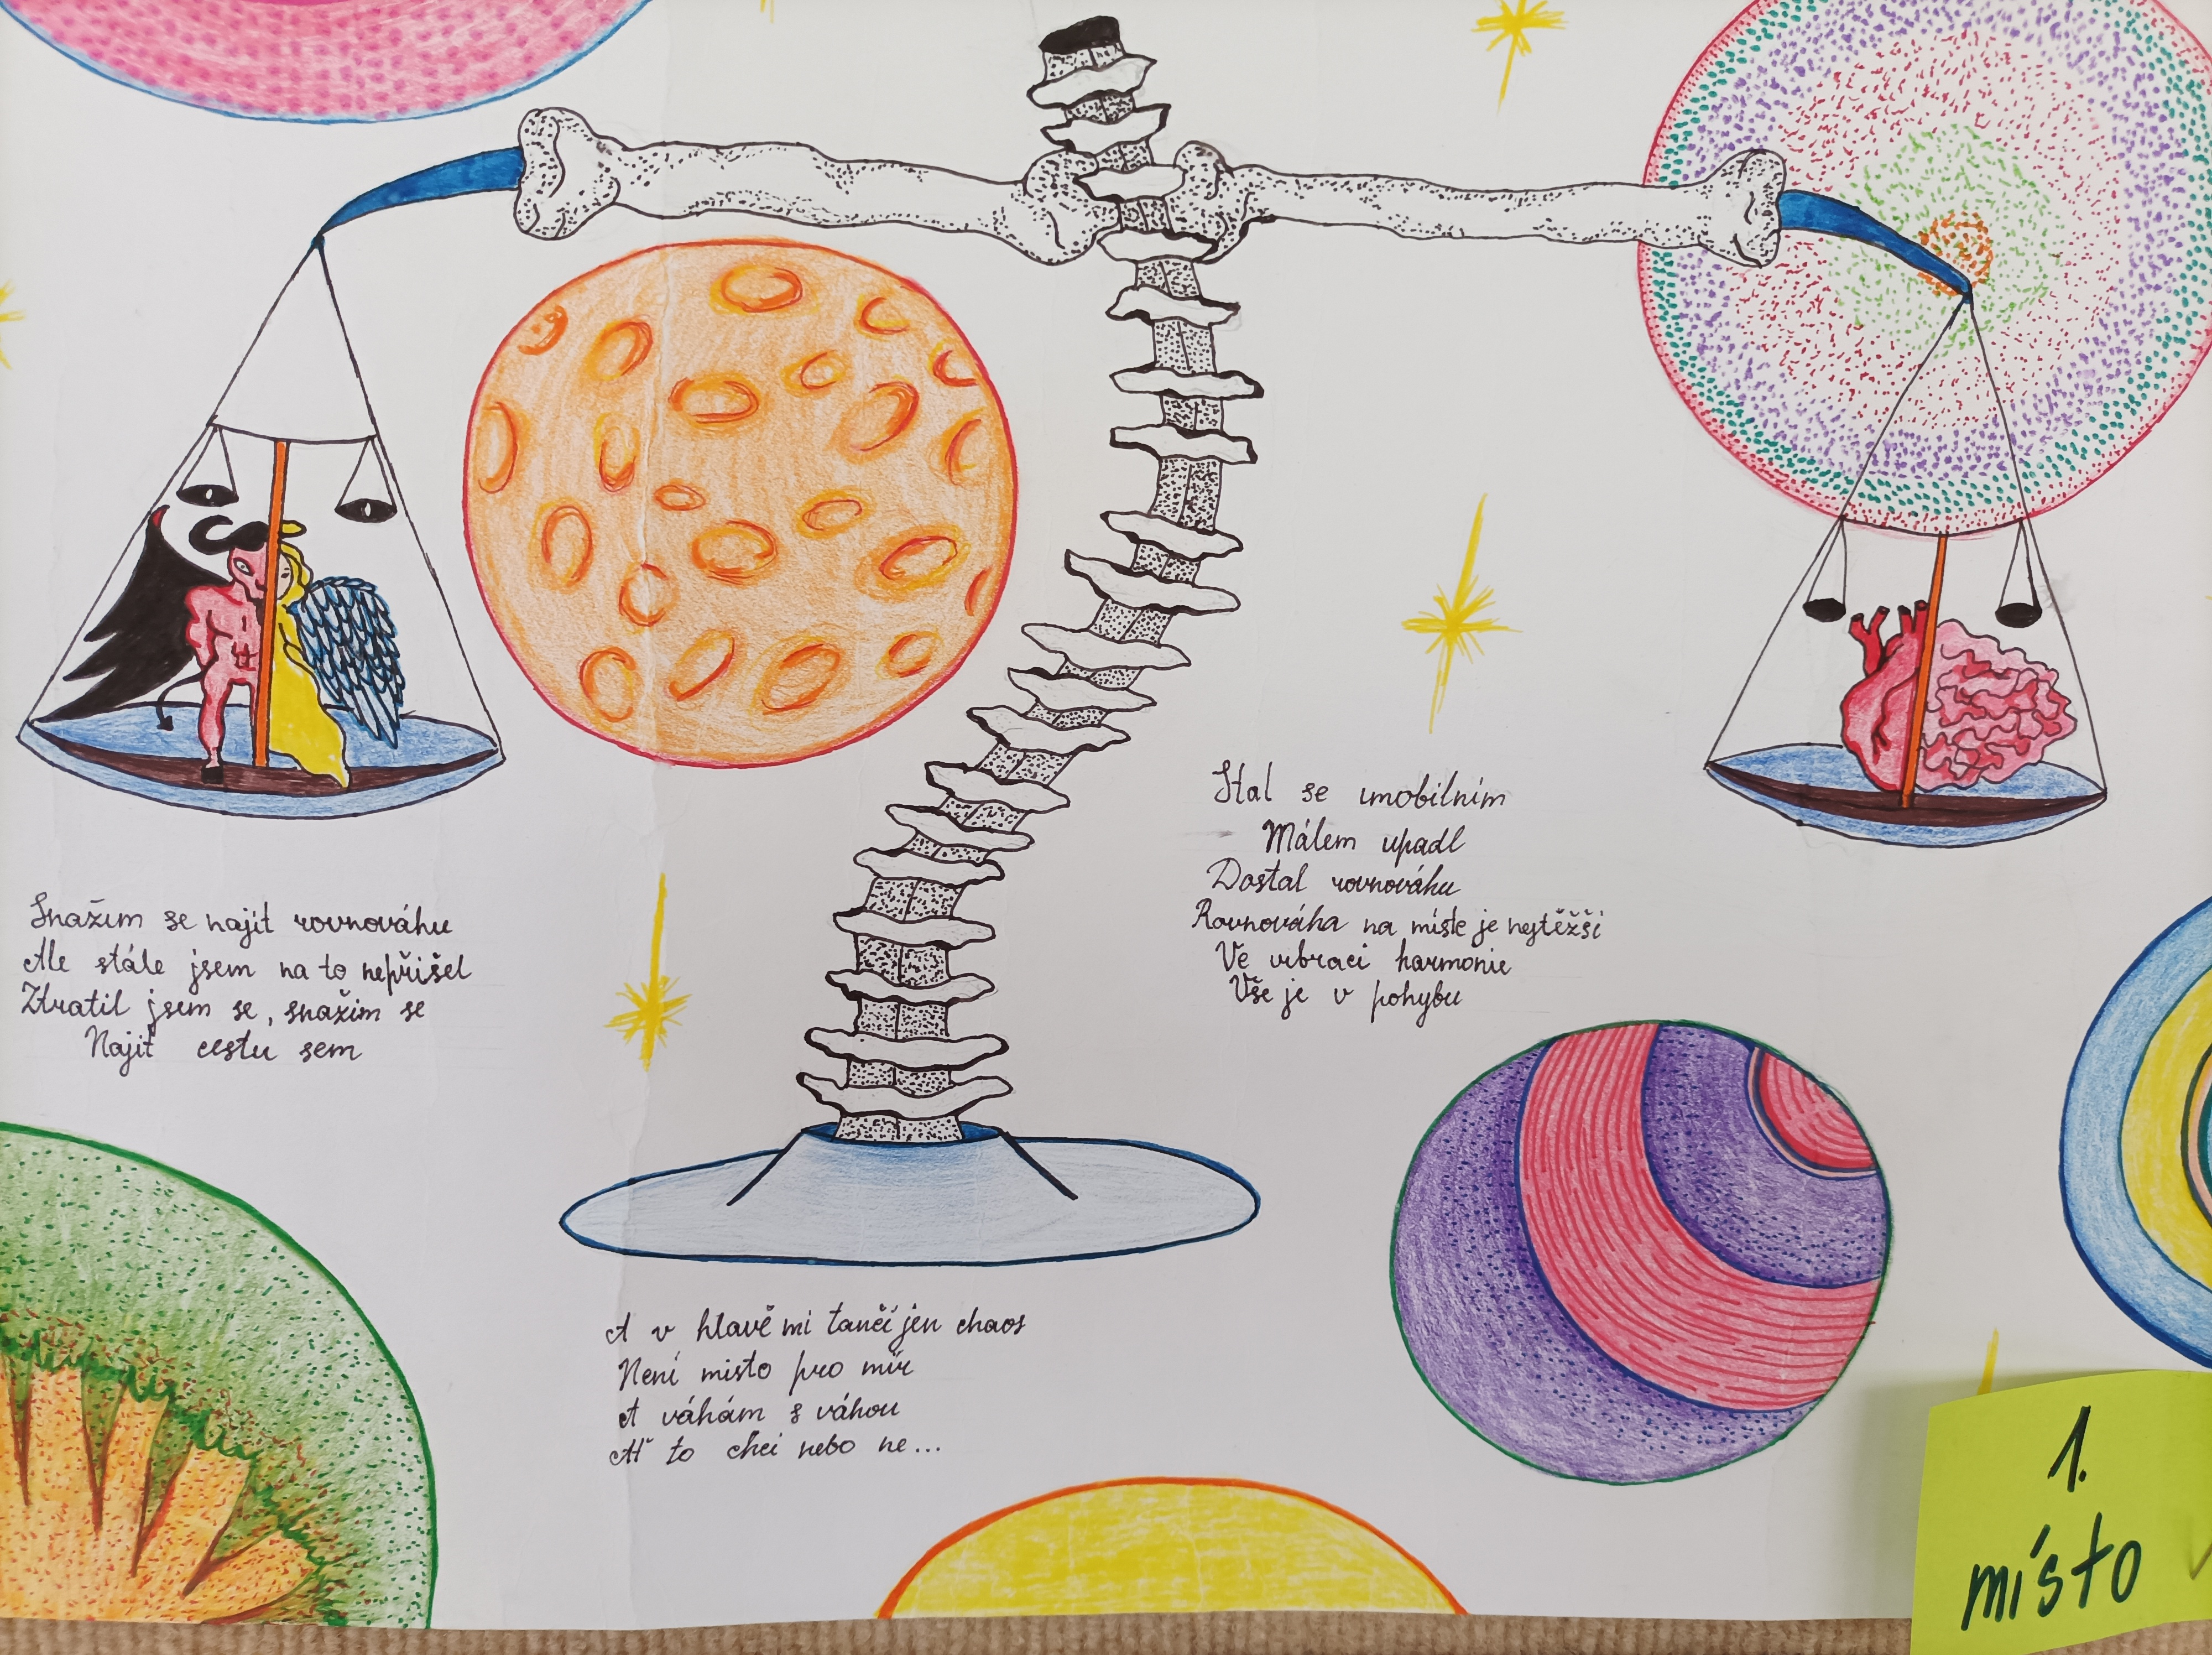 Snažím se najít rovnováhu
Ale stále jsem na to nepřišel
Ztratil jsem se, snažím se
Najít cestu sem
Stal se imobilním
Málem upadl
Dostal rovnováhu
Rovnováha na místě je nejtěžší
Ve vibraci harmonie
Vše je v pohybu
A v hlavě mi tančí jen chaos
Není místo pro mír
A váhám s váhou
Ať to chci nebo ne...
1.
místo